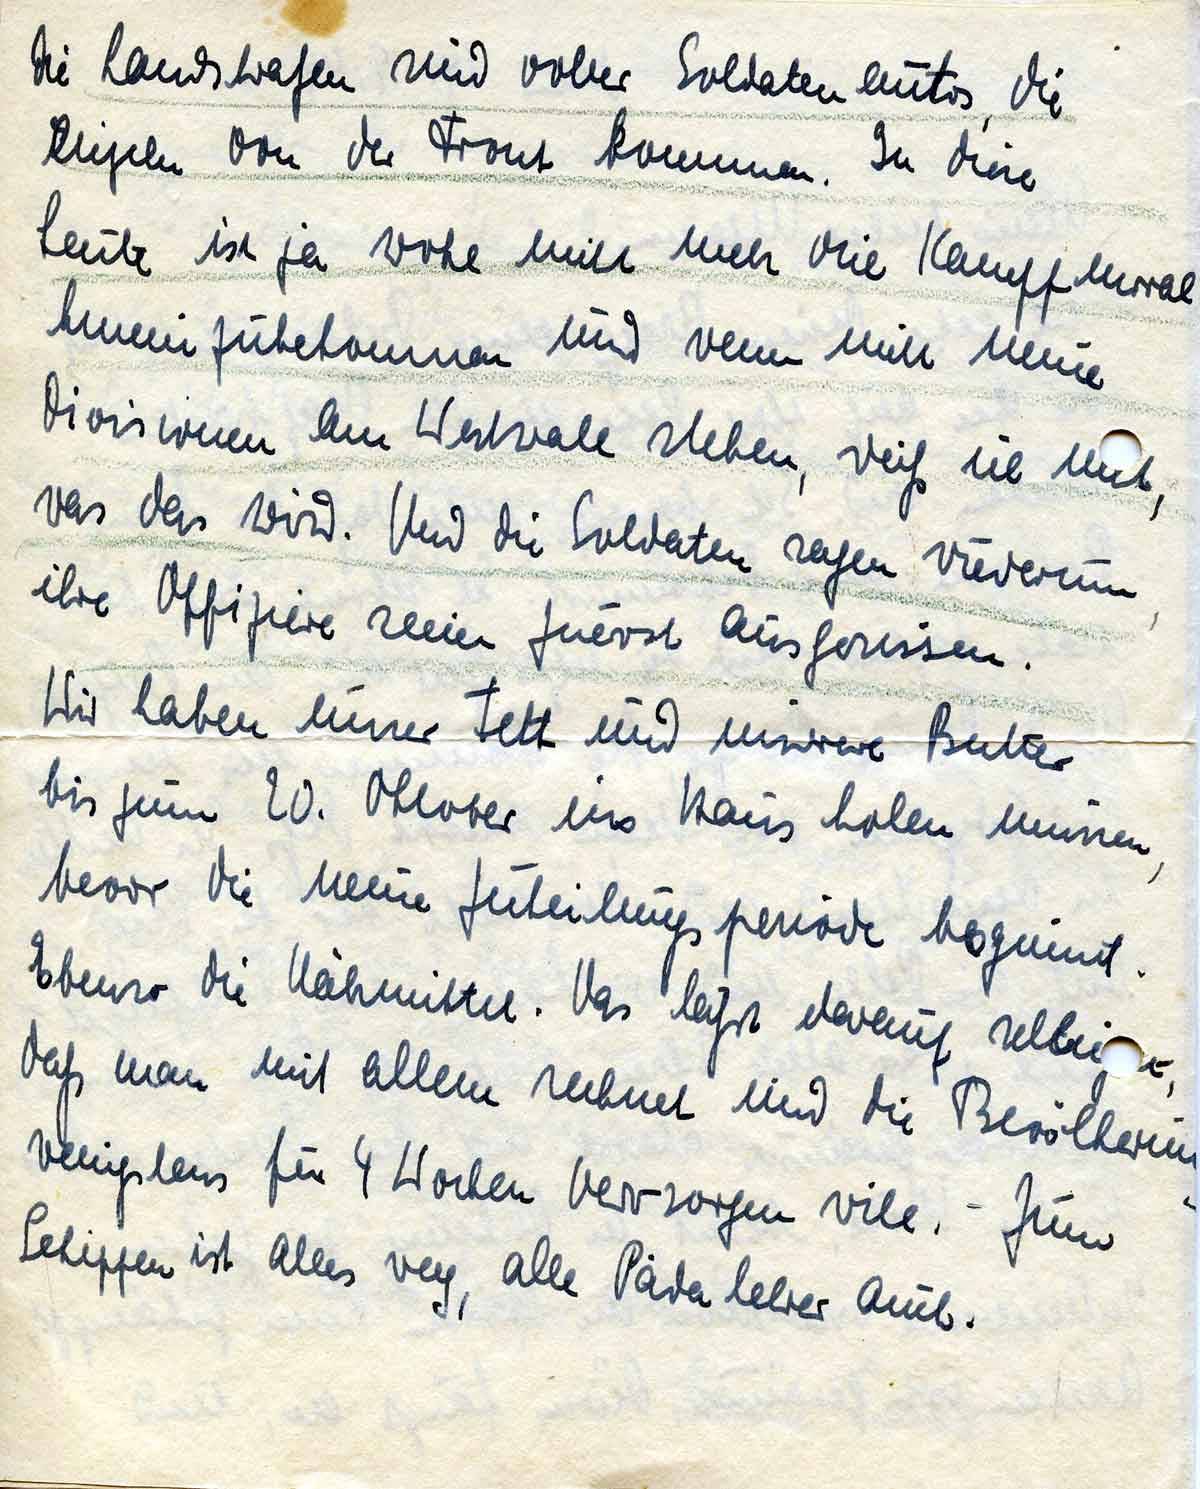 die Landstraßen sind voller Soldatenautos, die
von der Front kommen. In diese
Leute ist ja wohl nicht mehr die Kampfmoral
hineinzubekommen und wenn nicht neue
Divisionen am Westwall stehen, weiß ich nicht,
was das wird. Und die Soldaten sagen wiederum,
ihre Offiziere seien zuerst ausgerissen.
Wir haben unser Fett und unsere Butter
bis zum 20. Oktober ins Haus holen müssen,
bevor die neue Zuteilungsperiode beginnt.
Ebenso die Nährmittel. Das läßt darauf schließen,
daß man mit allem rechnet und die Bevölkerung
wenigstens für 4 Wochen versorgen will. – Zum
Schippen ist alles weg, alle Pädalehrer auch.